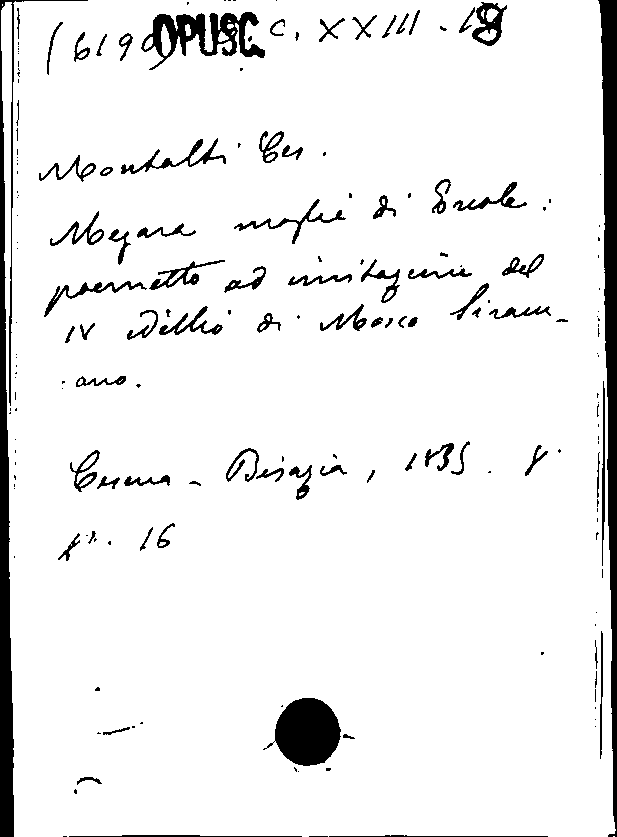 (6190) OPUSC. C. XXIII - 18
Montalti Ces.
Megara moglie di Ercole:
poemetto ad imitazione del
IV Idillio di Mosco Siracu-
sano.
Cesena - Bisazia, 1835. 8.
p. 16